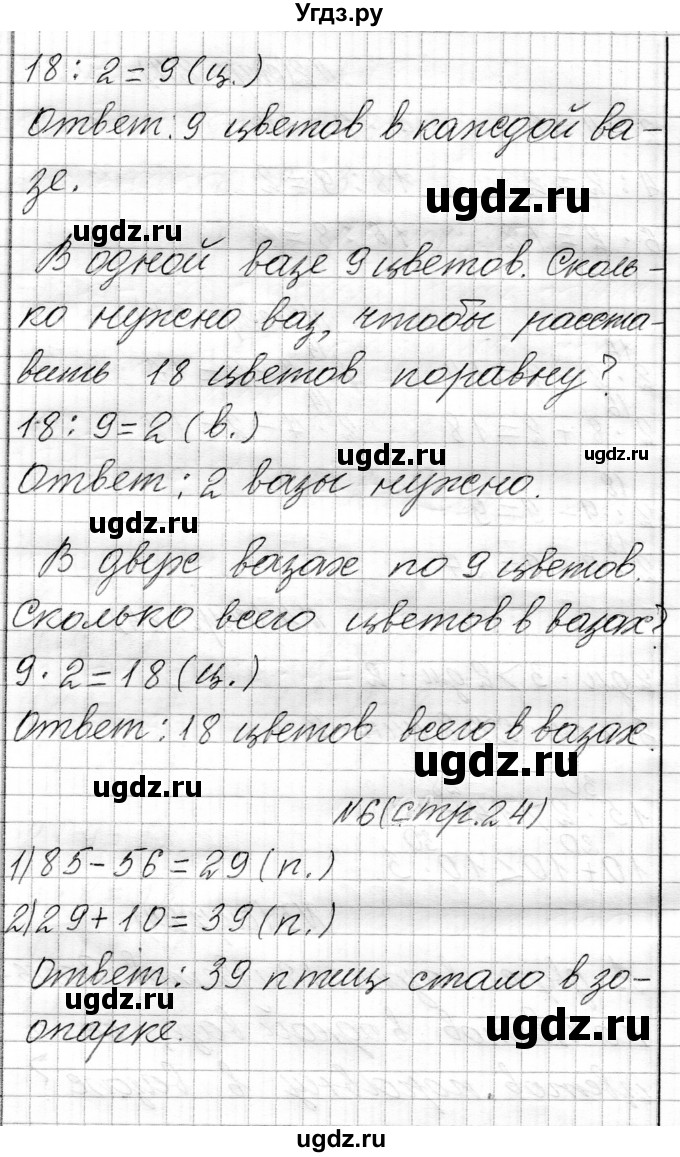 Угдз.ру
18 : 2 = 9 (ц.)
Ответ: 9 цветов в каждой ва-
зе.
ugdz.ru
ugdz.ru
В одной вазе 9 цветов. Сколь-
ко нужно ваз, чтобы расста-
вить 18 цветов поравну?
18 : 9 = 2 (в.)
ugdz.ru
ugdz.ru
Ответ: 2 вазы нужно.
ugdz.ru
В двух вазах по 9 цветов.
Сколько всего цветов в вазах?
9 · 2 = 18 (ц.)
Ответ: 18 цветов всего в вазах.
ugdz.ru
ugdz.ru
№6 (стр. 24)
1) 85 - 56 = 29 (п.)
2) 29 + 10 = 39 (п.)
Ответ: 39 птиц стало в зо-
ugdz.ru
опарке.
ugdz.ru
ugdz.ru